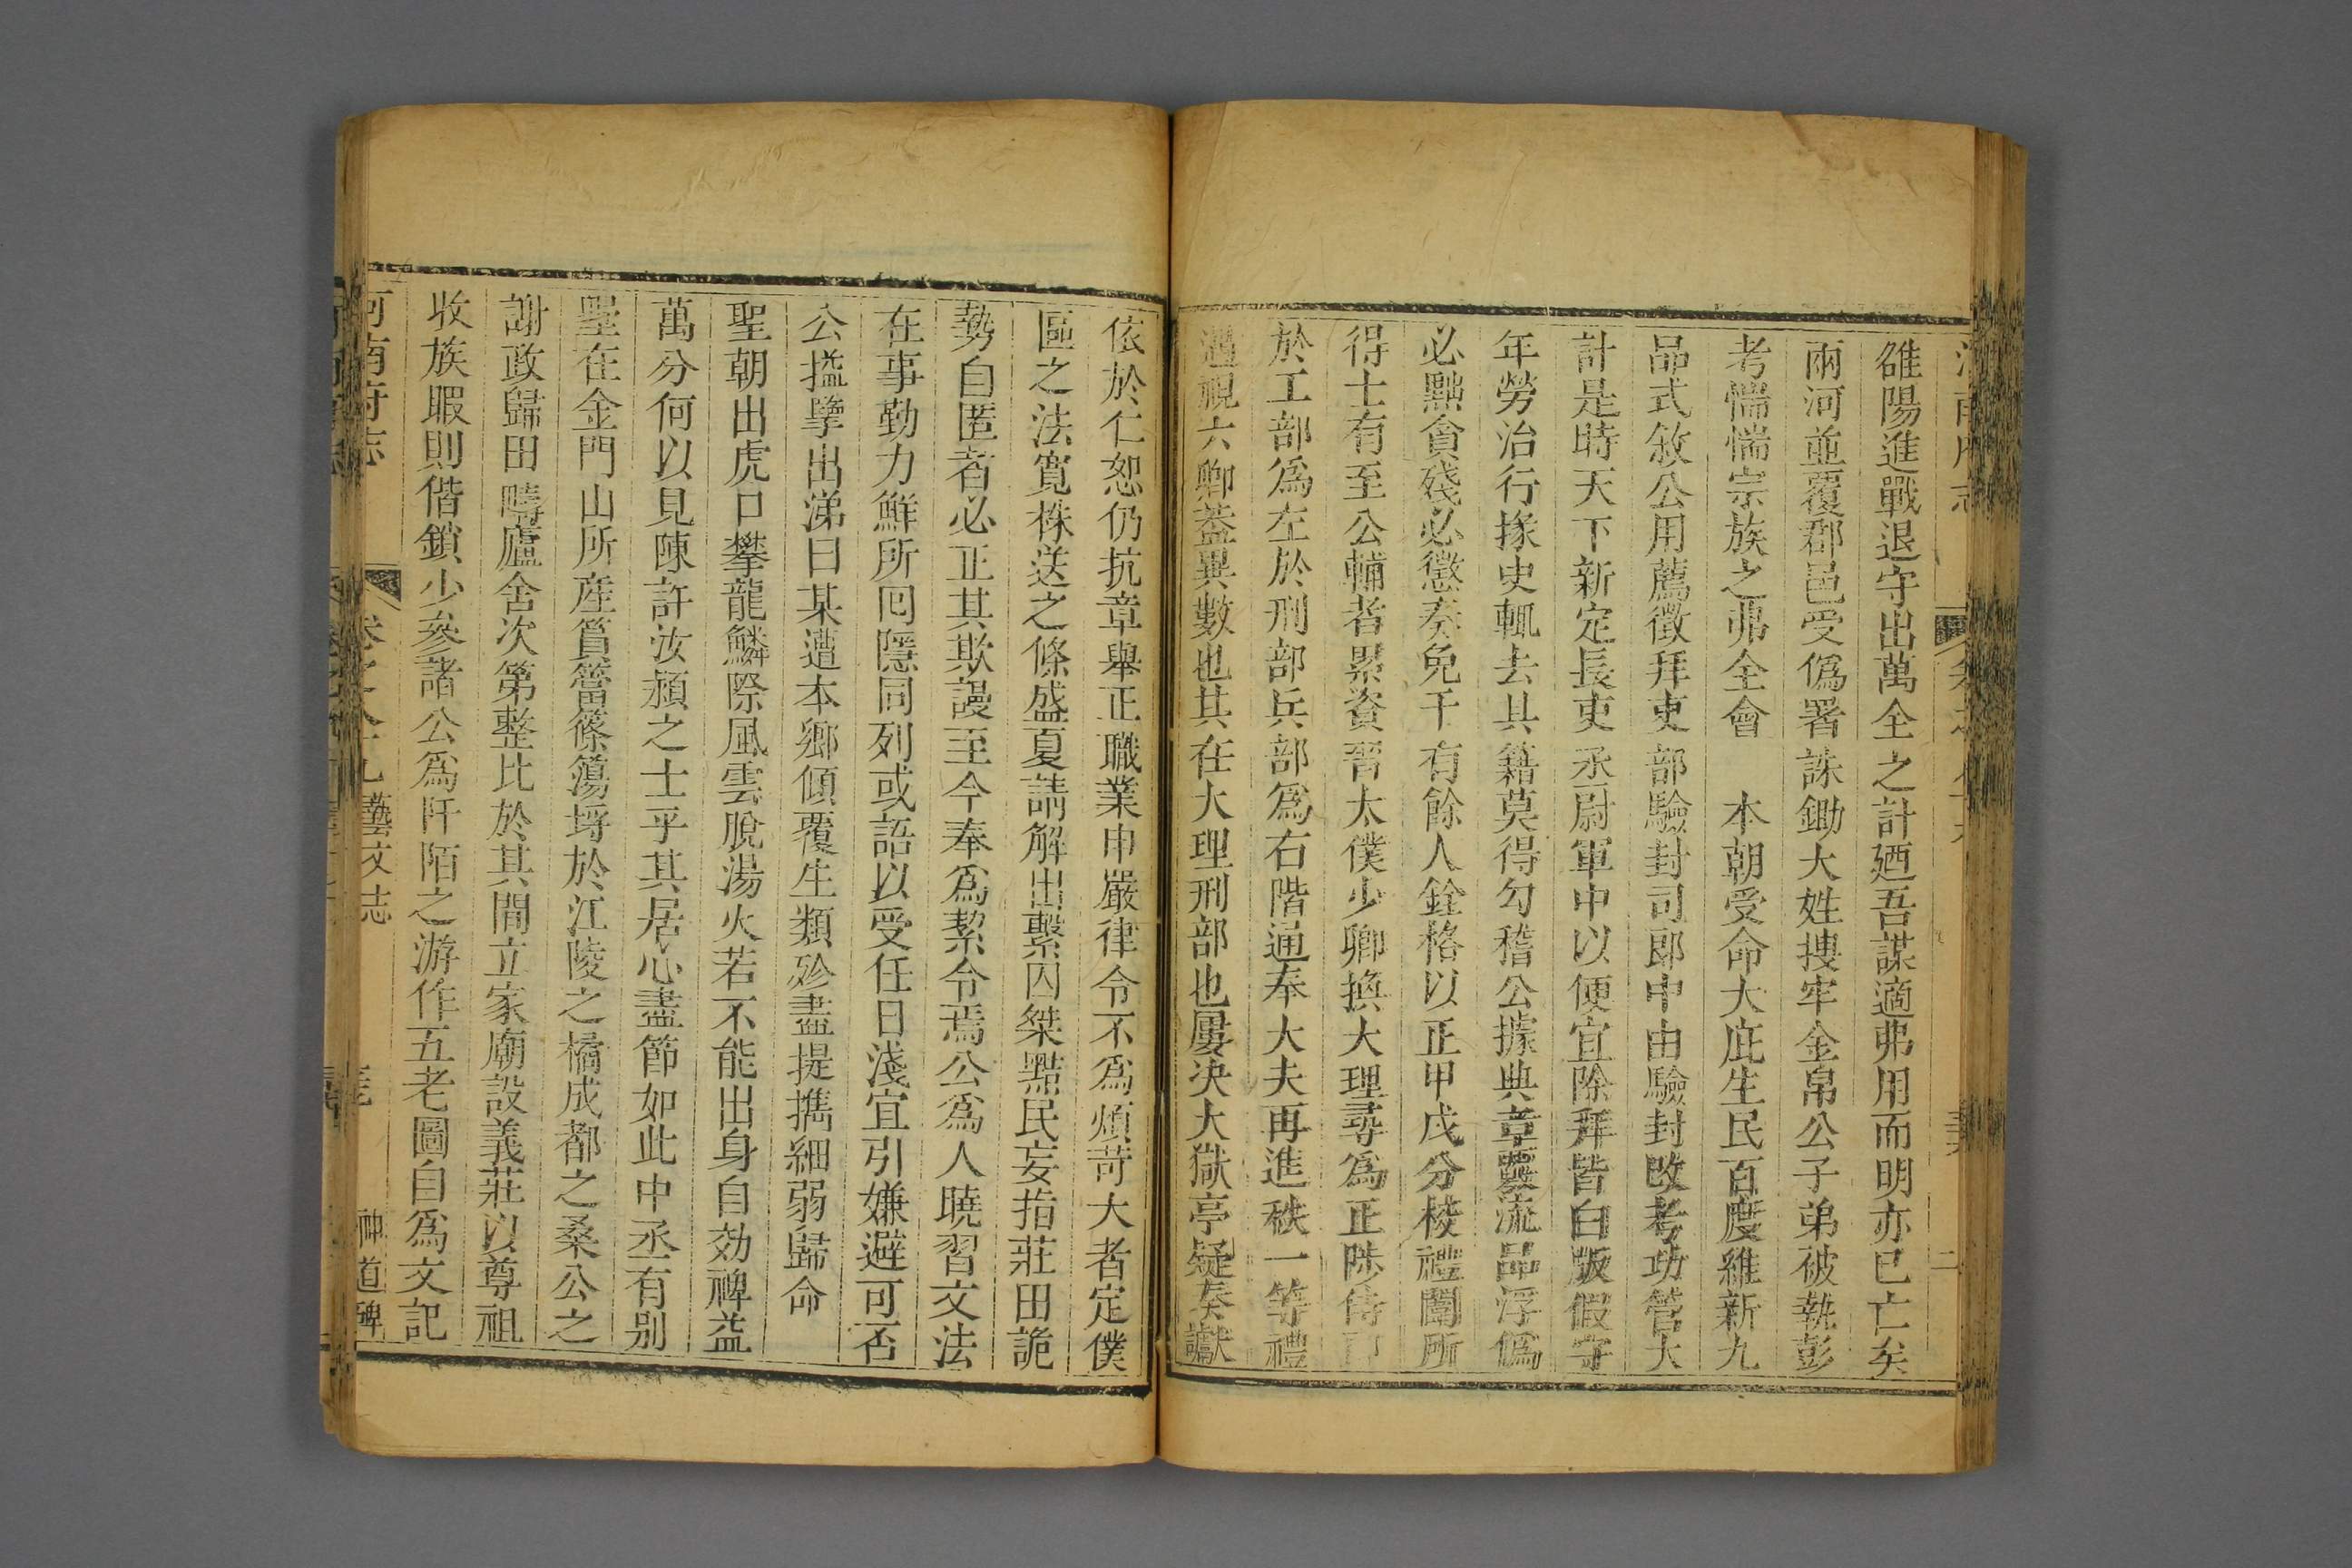 雒陽進戰退守出萬全之計廼吾謀適弗用而明亦已亡矣
兩河並覆郡邑受僞署誅鋤大姓摉牢金帛公子弟被執彭
考惴惴宗族之弗全會　本朝受命大庇生民百度維新九
品式敘公用薦徵拜吏部驗封司郎中由驗封改考功管大
計是時天下新定長吏丞尉軍中以便宜除拜皆白版假守
年勞治行掾史輒去其籍莫得勾稽公據典章覈流品浮僞
必黜貪殘必懲奏免千有餘人銓格以正甲戌分校禮闈所
得士有至公輔者累資晉太僕少卿換大理尋爲正陟侍郎
於工部爲左於刑部兵部爲右階通奉大夫再進秩一等禮
遇視六卿葢異數也其在大理刑部也屢決大獄亭疑奏讞
依於仁恕仍抗章舉正職業申嚴律令不爲煩苛大者定僕
區之法寬株送之條盛夏請解出繫囚桀黠民妄指莊田詭
勢自匿者必正其欺謾至今奉爲絜令焉公爲人曉習文法
在事勤力鮮所囘隱同列或語以受任日淺宜引嫌避可否
公搤擥出涕曰某遭本鄉傾覆生類殄盡提擕細弱歸命
聖朝出虎口攀龍鱗際風雲脫湯火若不能出身自効裨益
萬分何以見陳許汝潁之士乎其居心盡節如此中丞有别
墅在金門山所産篔簹篠簜埒於江陵之橘成都之桑公之
謝政歸田疇廬舍次第整比於其間立家廟設義莊以尊祖
收族暇則偕鎖少參諸公爲阡陌之游作五老圖自爲文記
河南府志　卷之八十九　藝文志　神道碑